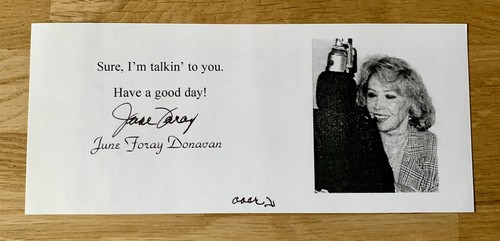 Sure, I’m talkin’ to you.
Have a good day!
June Foray
June Foray Donavan
over